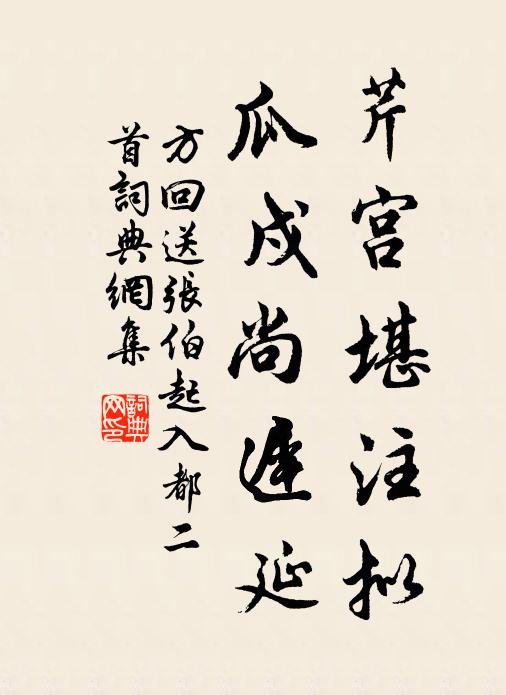 芹宮堪注拟
瓜戍尚遲延
方回送張伯起入都二
首詞典網集
詞典网印